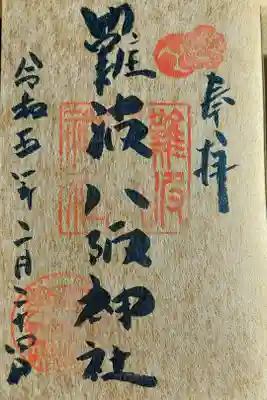 奉拝
難波八阪神社
難波
令和五年二月二十四日